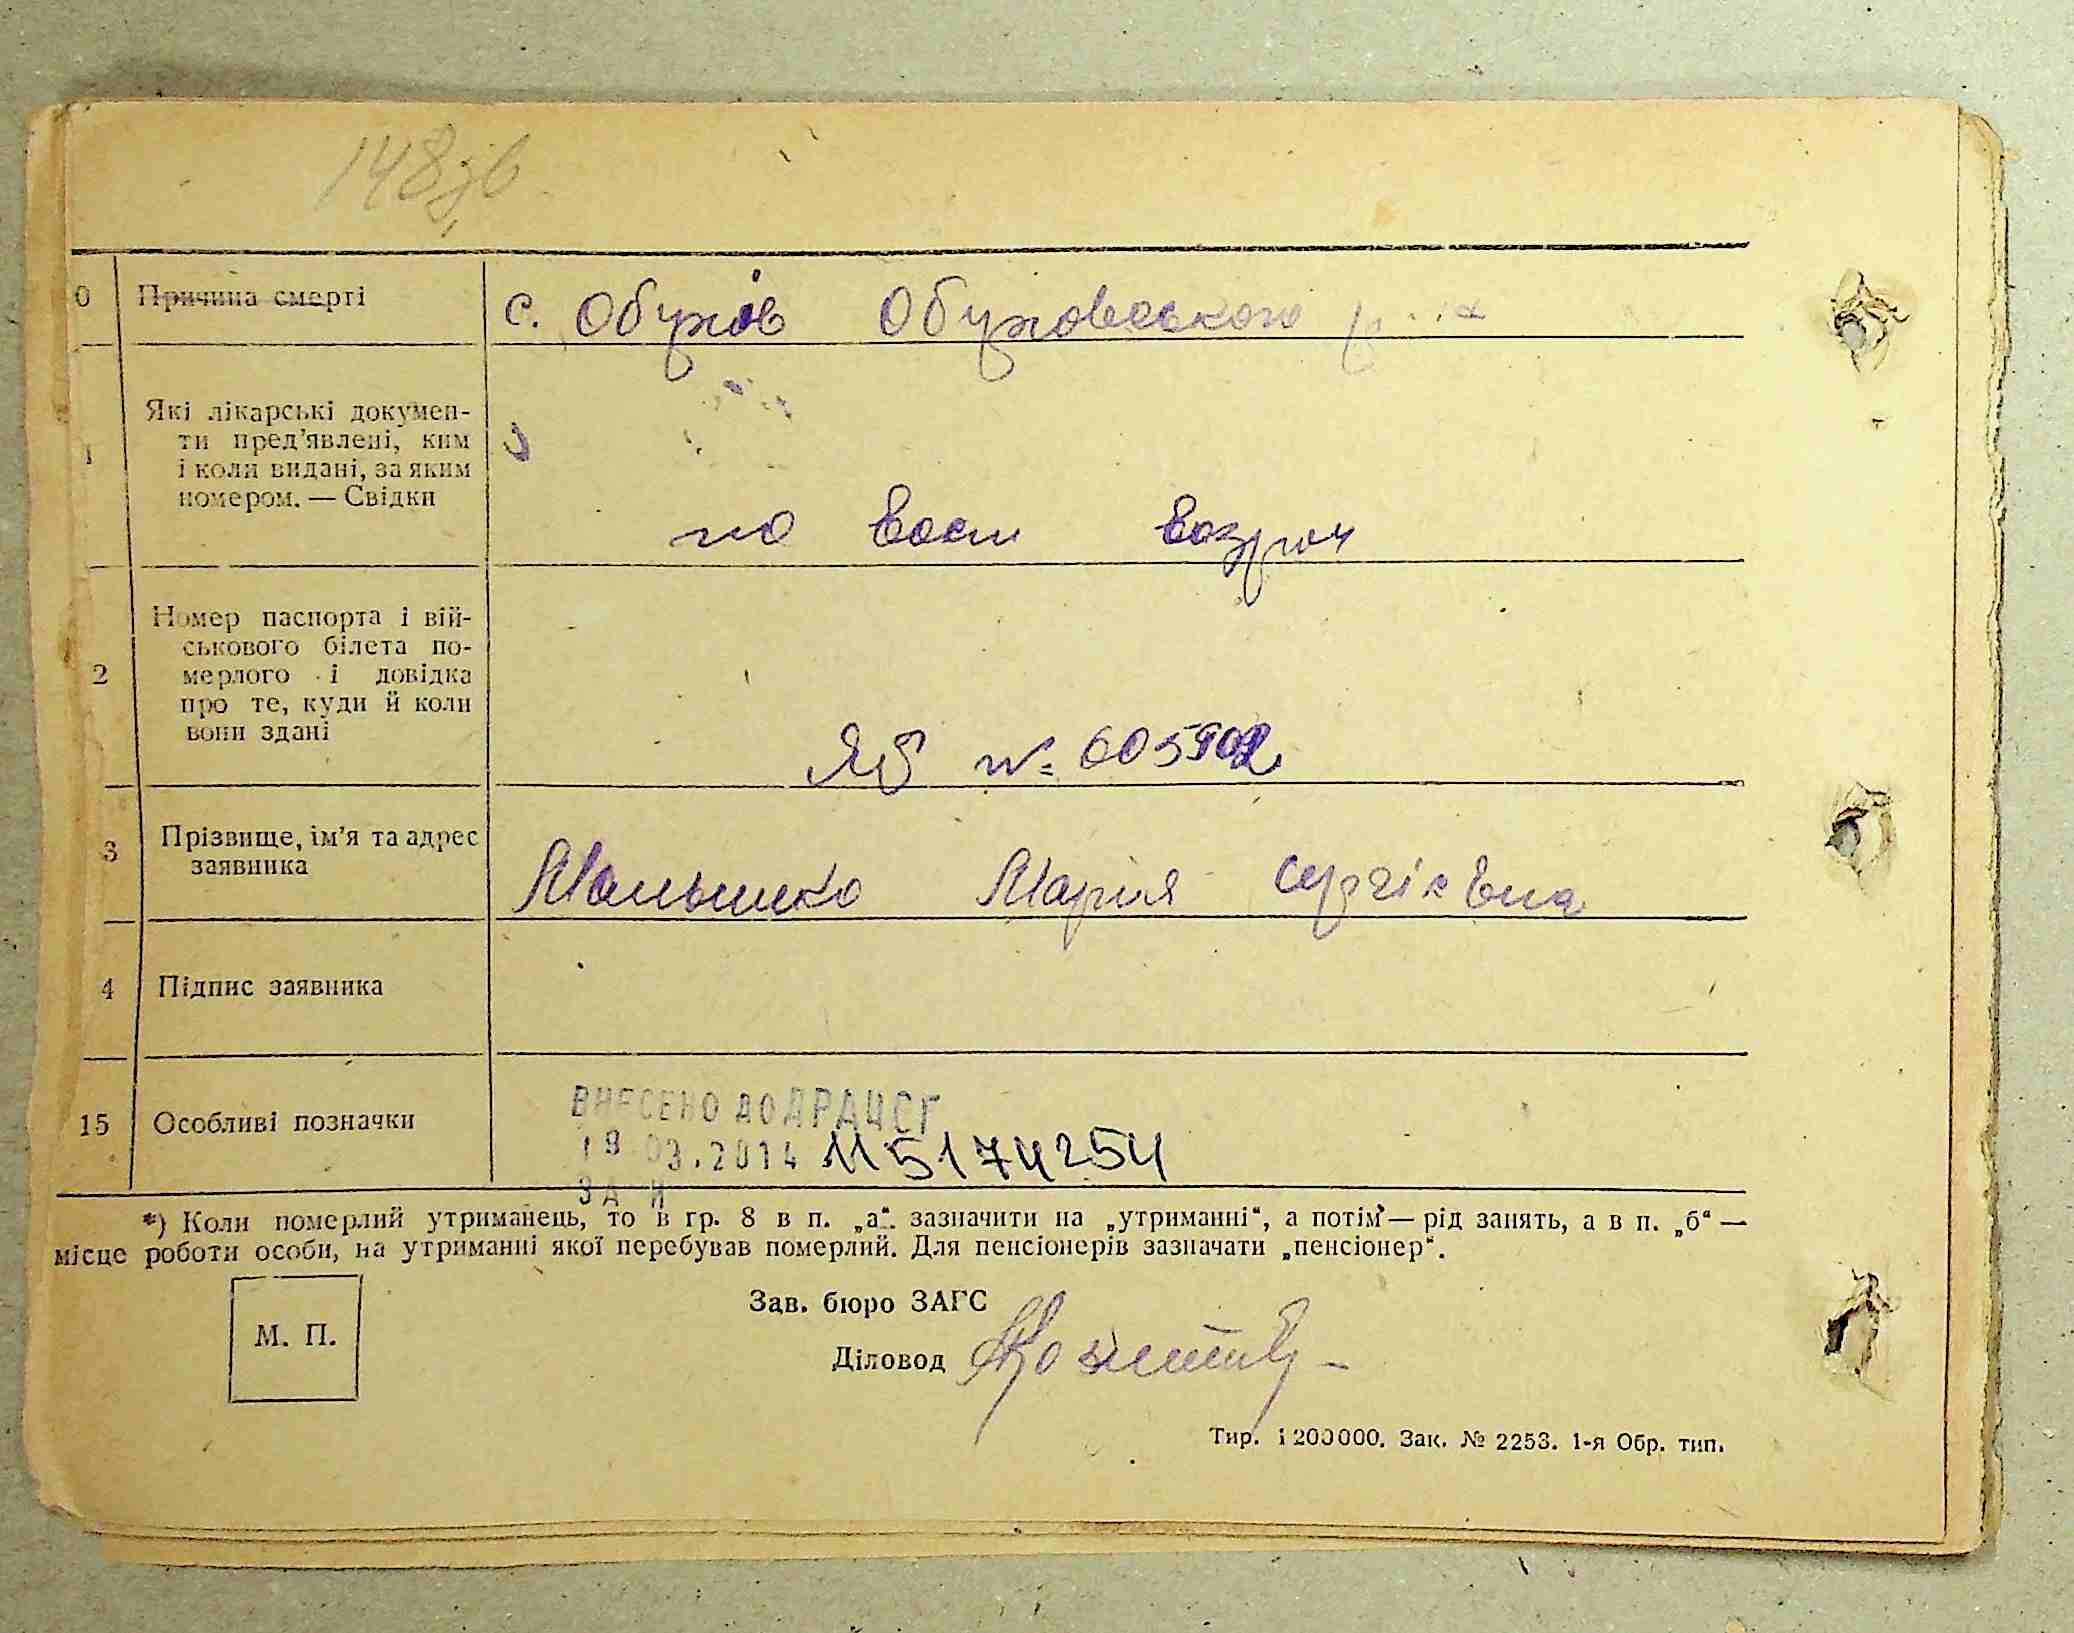 148зв
0 Причина смерті с. Обухов Обуховського
1 Які лікарські докумен-
ти пред’явлені, ким
і коли видані, за яким
номером. — Свідки
по восст возрож
2 Номер паспорта і вій-
ськового білета по-
мерлого і довідка
про те, куди й коли
вони здані
ЯБ № 605902
3 Прізвище, ім’я та адрес
заявника
Малышко Мария Сергіевна
4 Підпис заявника
15 Особливі позначки
ВНЕСЕНО ДО ДРАЦСГ
18 03.2014 115174254
ЗА И
*) Коли померлий утриманець, то в гр. 8 в п. „а“ зазначити на „утриманні“, а потім — рід занять, а в п. „б“ —
місце роботи особи, на утриманні якої перебував померлий. Для пенсіонерів зазначати „пенсіонер“.
М. П.
Зав. бюро ЗАГС
Діловод
Тир. 1200000. Зак. № 2253. 1-я Обр. тип.